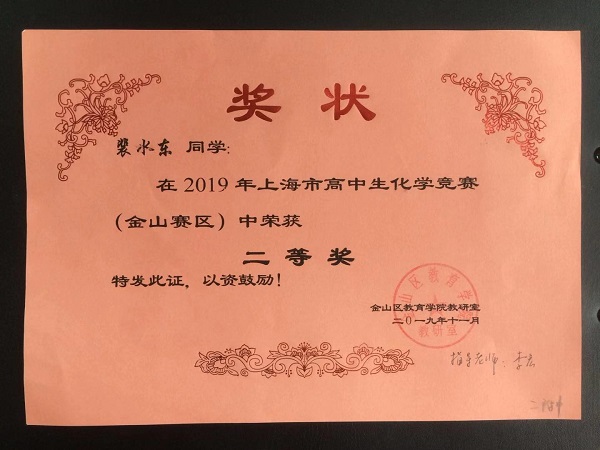 奖状
裴水东 同学:
在2019年上海市高中生化学竞赛
(金山赛区)中荣获
二等奖
特发此证，以资鼓励!
金山区教育学院教研室
二0一九年十一月
教研室
指导老师:李宏